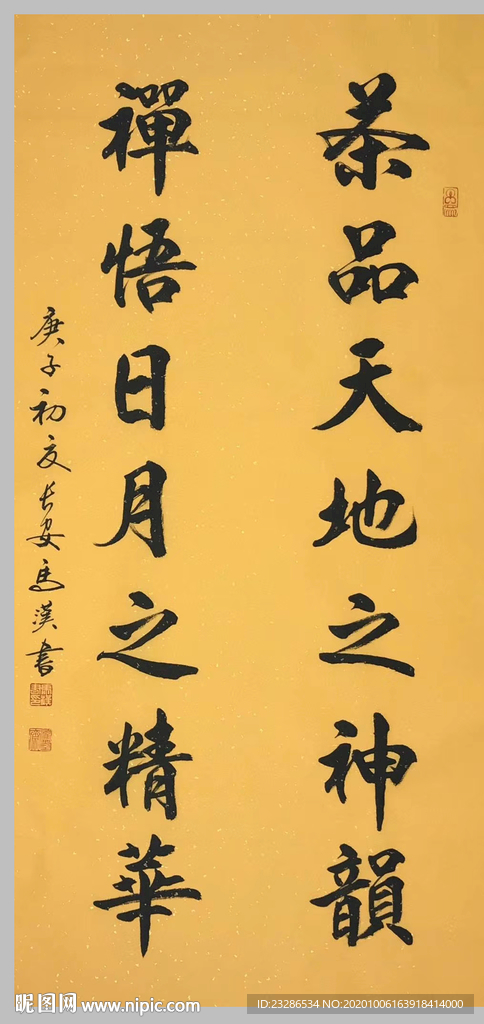 茶品天地之神韻
禪悟日月之精華
庚子初夏长安馬漢書
昵图网 www.nipic.com
ID:23286534 NO:20201006163918414000